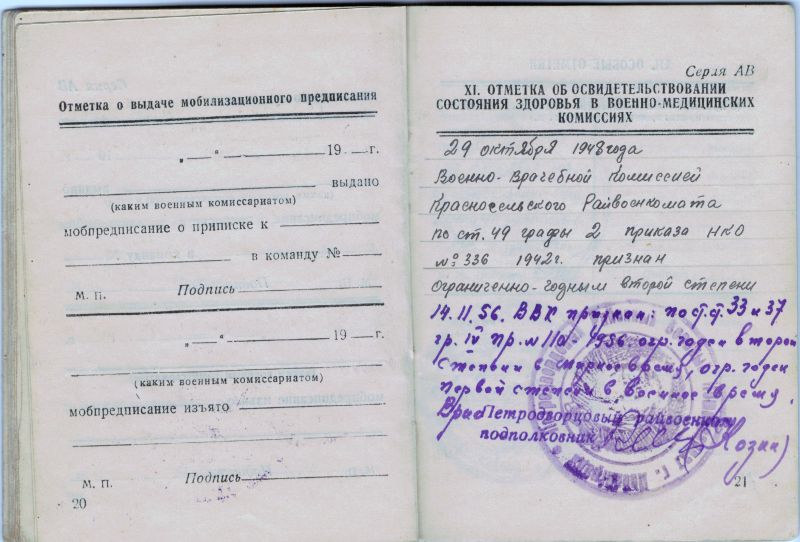 Отметка о выдаче мобилизационного предписания
„ — “ 19 — г.
выдано
(каким военным комиссариатом)
мобпредписание о приписке к
в команду №
М. П. Подпись
„ — “ 19 — г.
(каким военным комиссариатом)
мобпредписание изъято
М. П. Подпись
20
Серия АВ
XI. ОТМЕТКА ОБ ОСВИДЕТЕЛЬСТВОВАНИИ
СОСТОЯНИЯ ЗДОРОВЬЯ В ВОЕННО-МЕДИЦИНСКИХ
КОМИССИЯХ
29 октября 1948 года
Военно-Врачебной Комиссией
Красносельского Райвоенкомата
по ст. 49 графы 2 приказа НКО
№ 336 1942 г. признан
ограниченно-годным второй степени
14.11.56. ВВК признан: по ст.ст. 33 и 37
гр. IV пр. № 110 - 1956 огр. годен второй
степени в мирное время, огр. годен
первой степени в военное время.
Петродворцовый райвоенком
подполковник
21